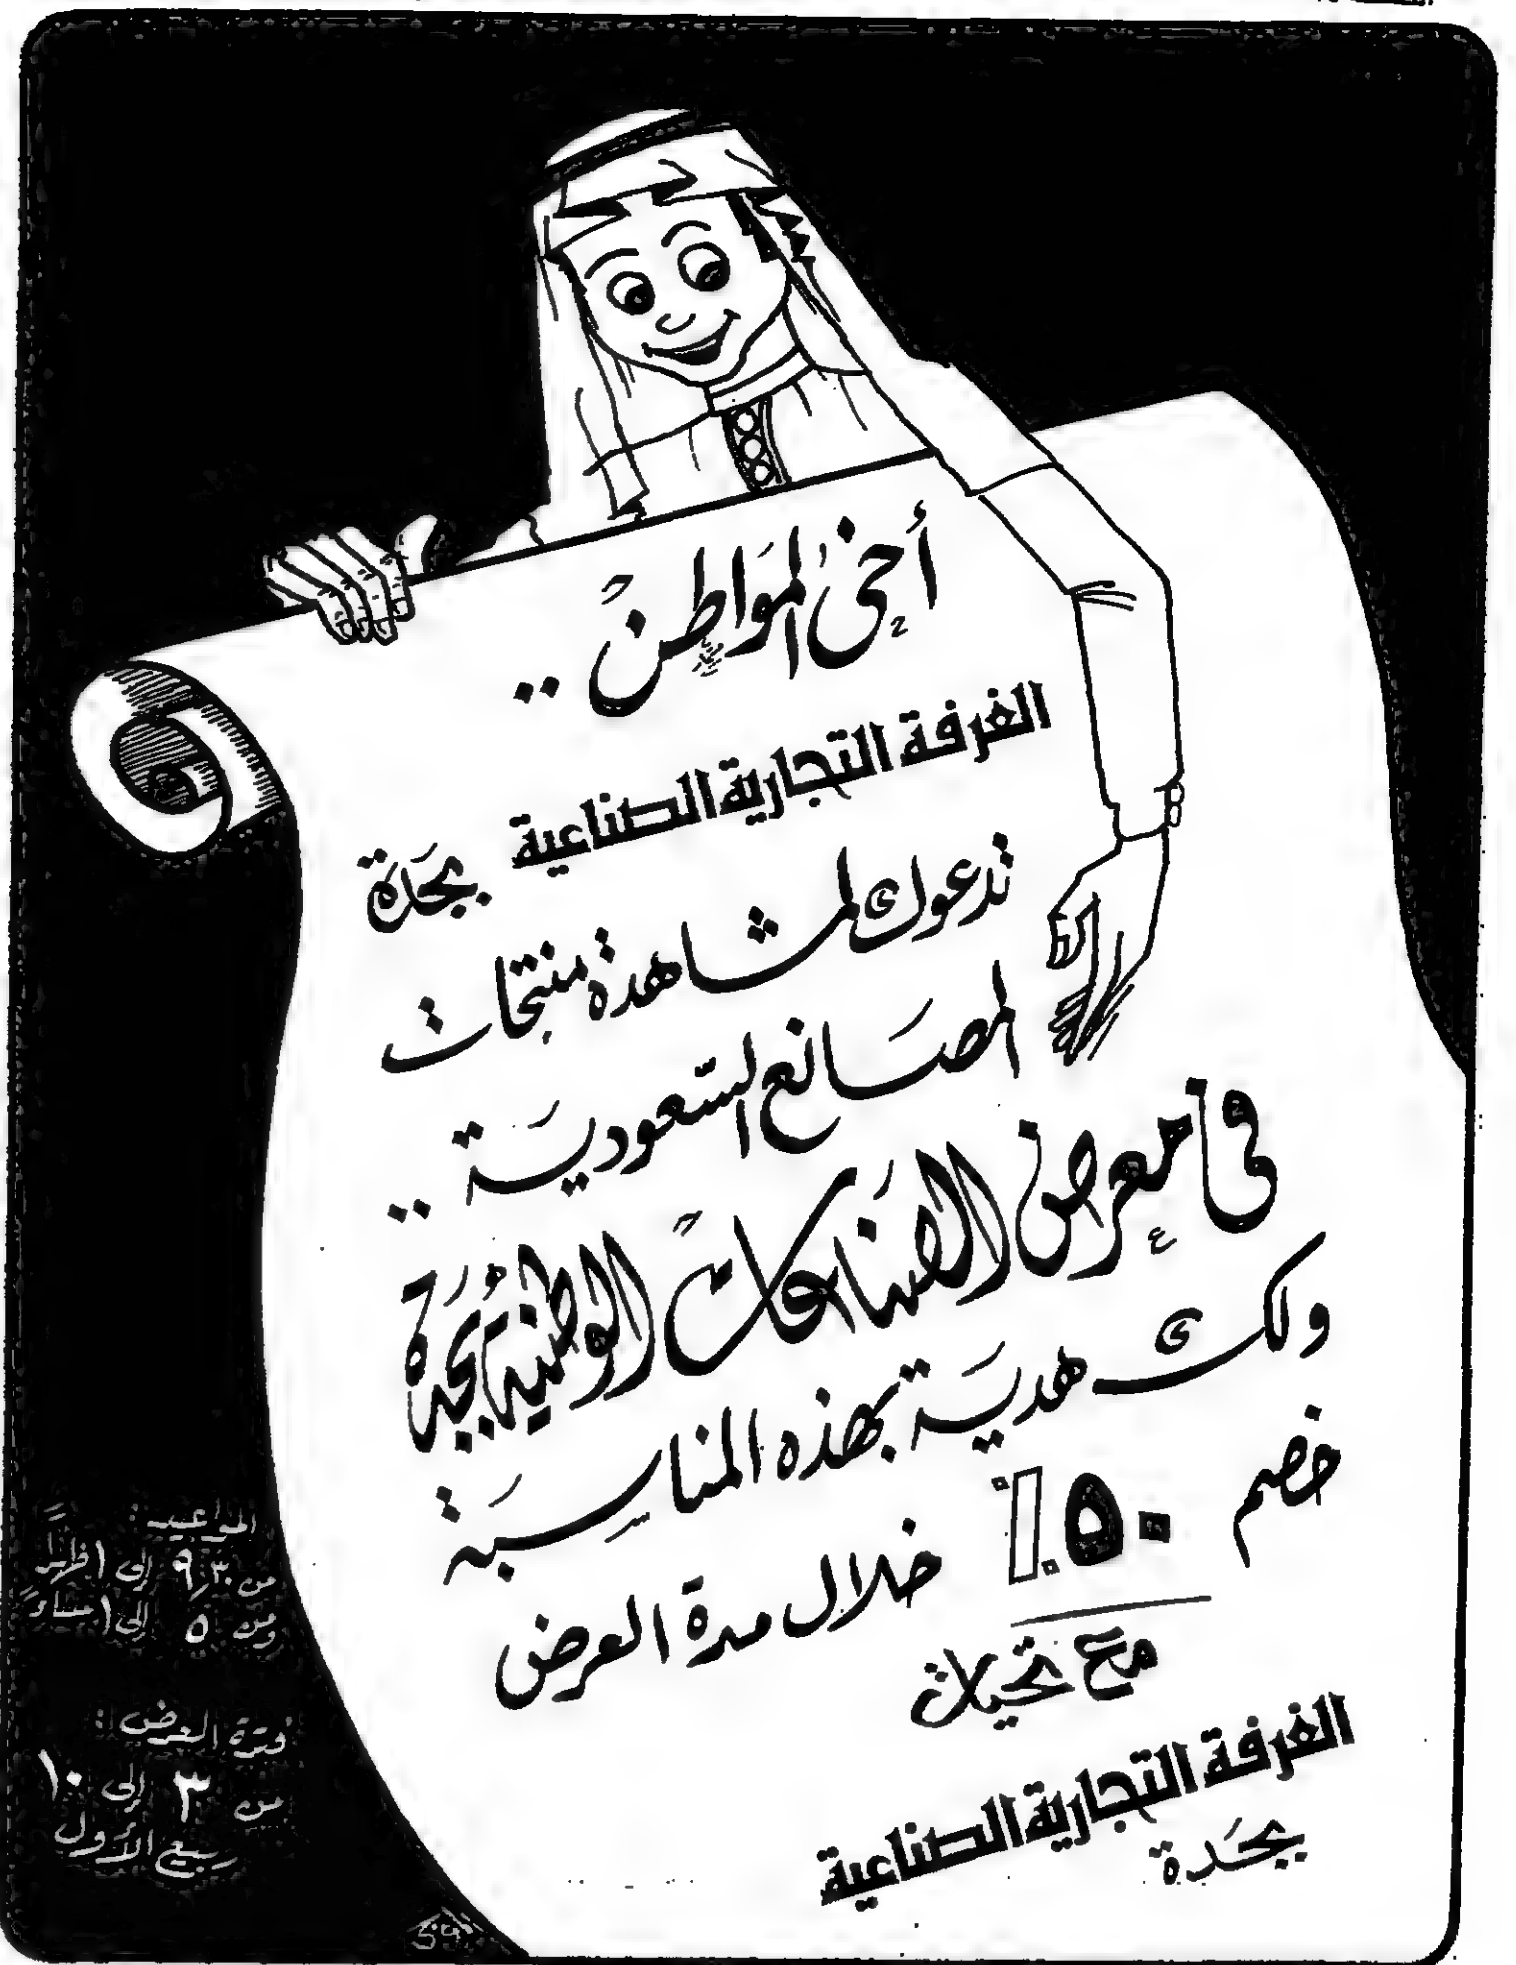 أخي المواطن ..
الغرفة التجارية الصناعية بجدة
تدعوك لمشاهدة منتجات
المصانع السعودية ..
في معرض الصناعات الوطنية بجدة
ولك هدية بهذه المناسبة
خصم ٥٠٪ خلال مدة العرض
مع تحيات
الغرفة التجارية الصناعية
بجدة
المواعيد :
من ٩٫٣٠ إلى ١ ظهراً
ومن ٥ إلى مساءً
فترة العرض :
من ٣ إلى ١٠
ربيع الأول